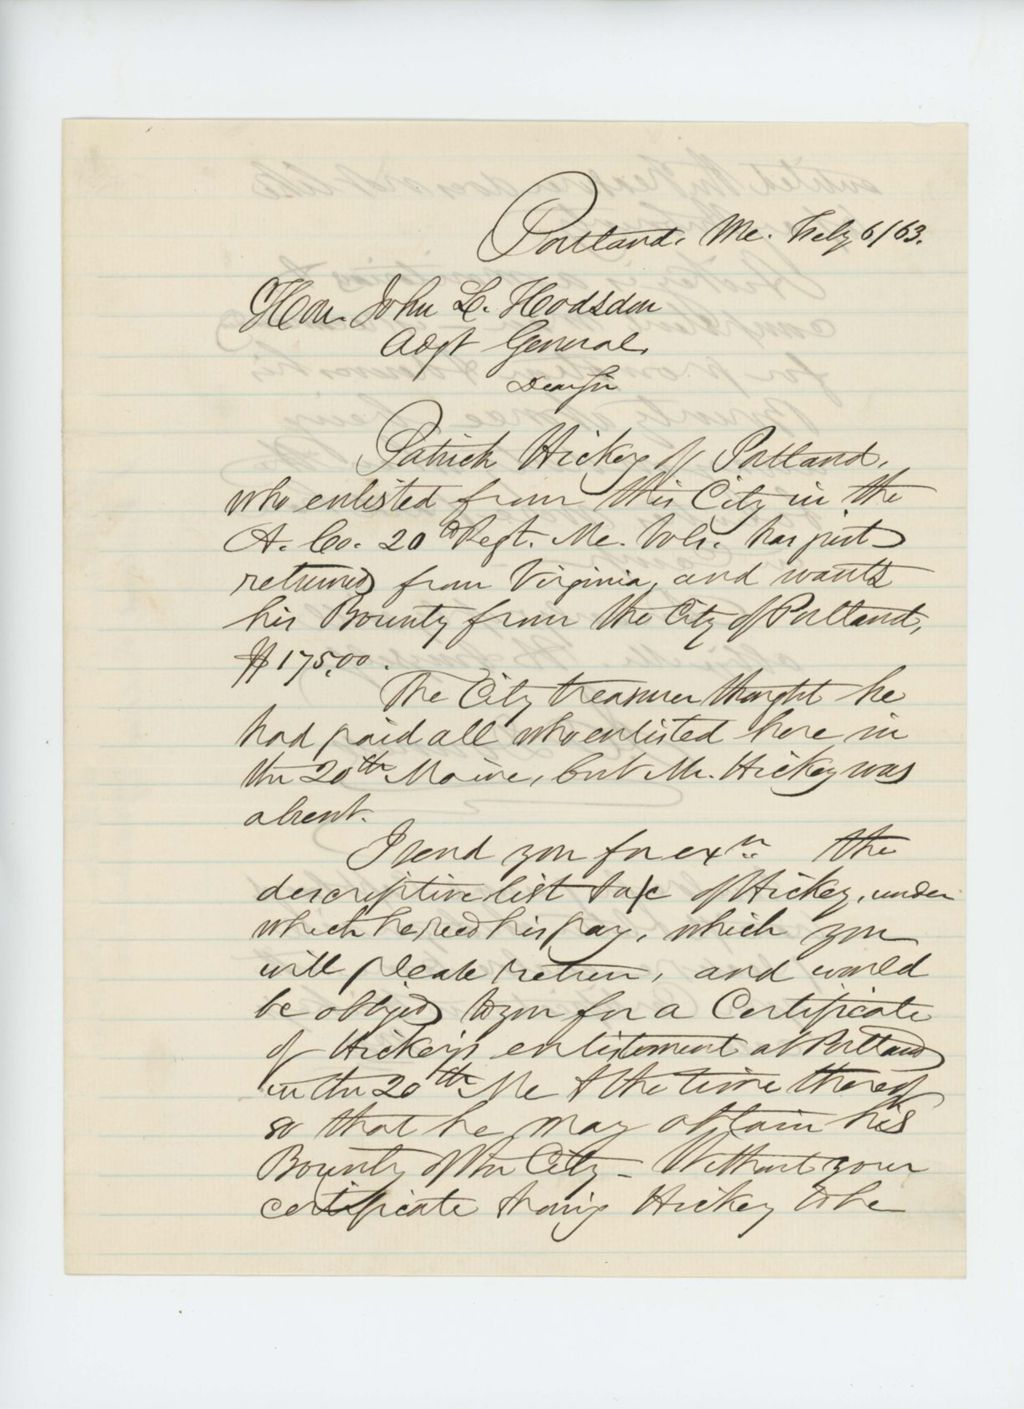 Portland, Me. Feby 6/63.
Hon. John L. Hodsdon
Adjt General,
Dear Sir
Patrick Hickey of Portland,
who enlisted from this City in the
A. Co. 20th Regt. Me. Vols. has just
returned from Virginia, and wants
his Bounty from the City of Portland,
$175.00.
The City treasurer thought he
had paid all who enlisted here in
the 20th Maine, but Mr. Hickey was
absent.
I send you for exn. the
descriptive list &c of Hickey, under
which he recd his pay, which you
will please return, and would
be obliged to you for a Certificate
of Hickey's enlistement at Portland
in the 20th Me & the time thereof
so that he may obtain his
Bounty of the City - Without your
certificate Hickey to be